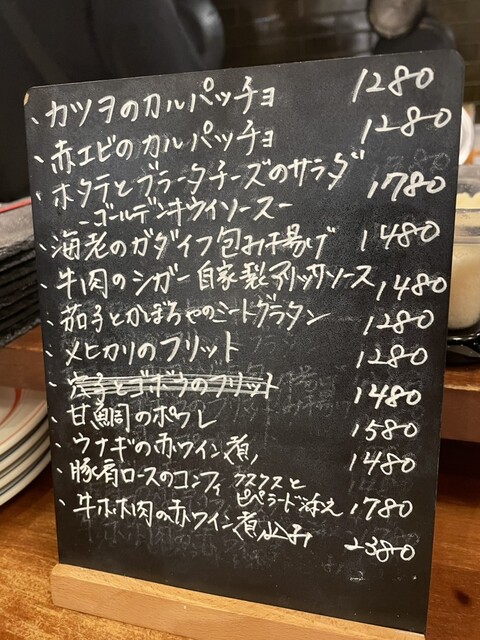 、カツヲのカルパッチョ 1280
、赤エビのカルパッチョ 1280
、ホタテとブラータチーズのサラダ 1780
-ゴールデンキウイソース-
、海老のカダイフ包み揚げ 1480
、牛肉のシガー 自家製アリッサソース 1480
、茄子とかぼちゃのミートグラタン 1280
、メヒカリのフリット 1280
、穴子とゴボウのフリット 1480
、甘鯛のポワレ 1580
、ウナギの赤ワイン煮 1480
、豚肩ロースのコンフィ クスクスと
ピペラード添え 1780
、牛ホホ肉の赤ワイン煮込み 2380